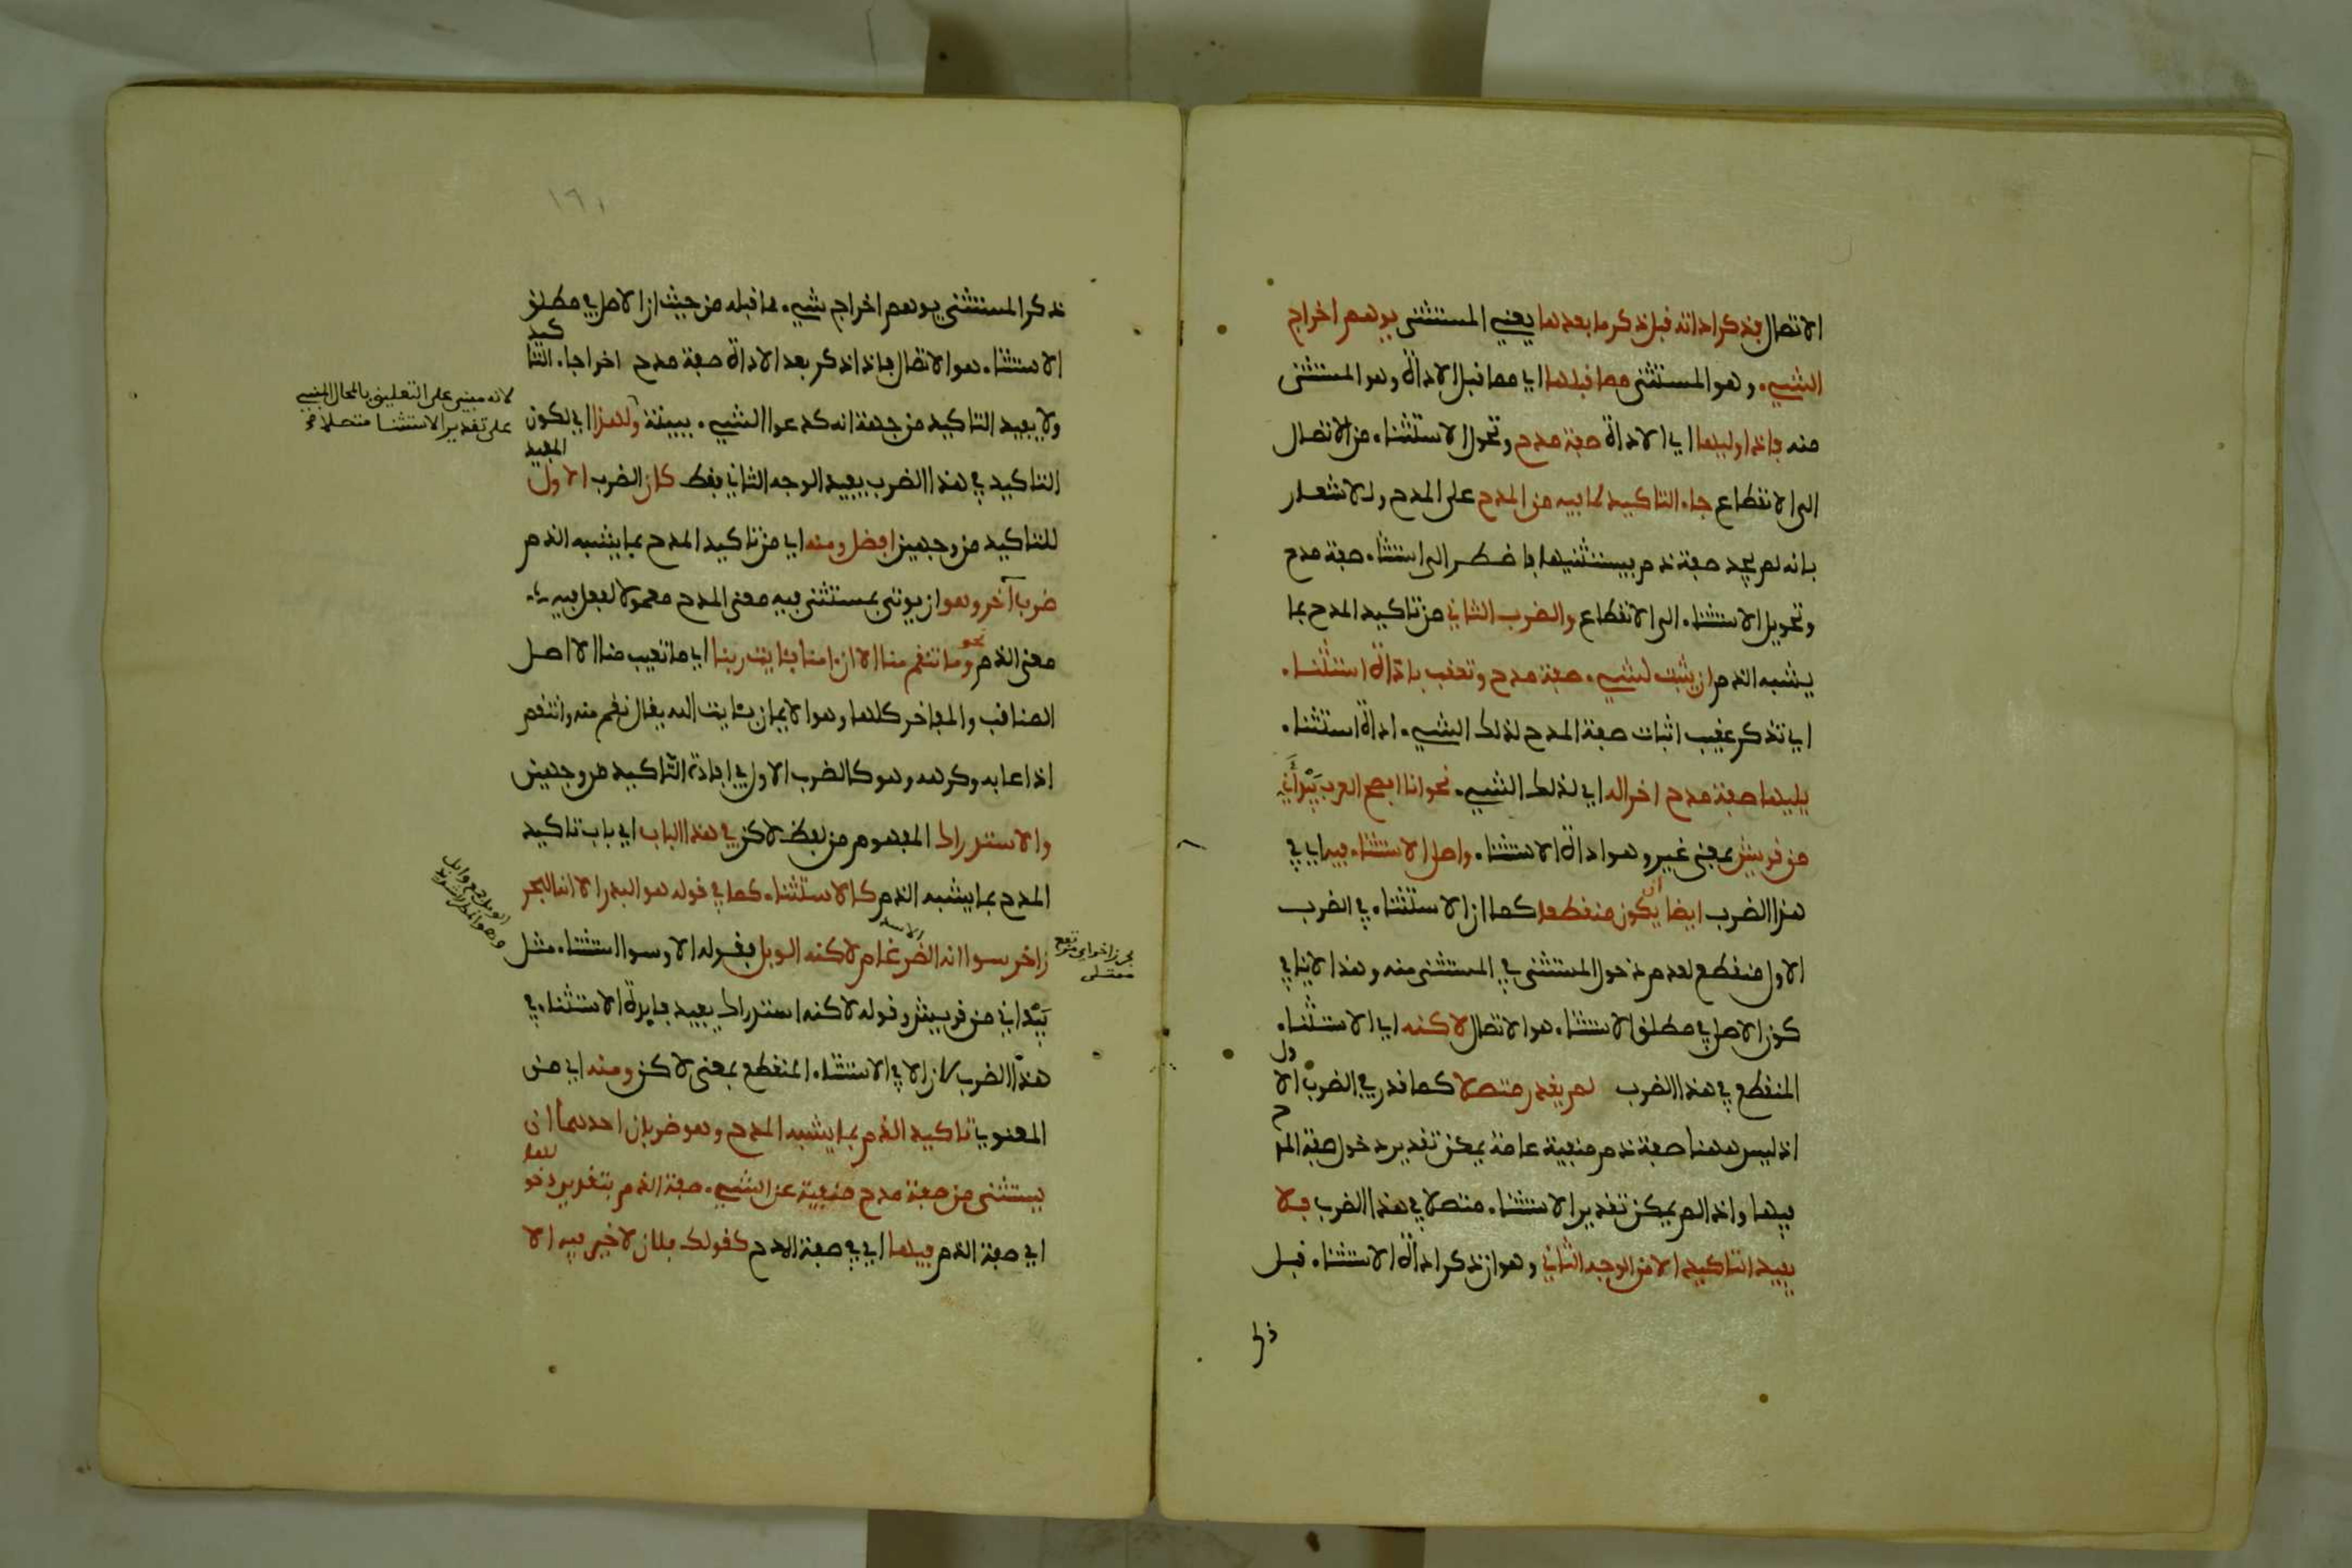 الاتصال فذكر اداته قبل ذكر ما بعدها يعني المستثنى يوهم اخراج
الشيء وهو المستثنى مما قبلها اي مما قبل الاداة وهو المستثنى
منه فاذا وليها اي الاداة صفة مدح وتحول الاستثناء من الاتصال
الى الانقطاع جاء التاكيد لما فيه من المدح على المدح والاشعار
بانه لم يجد صفة ذم يستثنيها فاضطر الى استثناء صفة مدح
وتحويل الاستثناء الى الانقطاع والضرب الثاني من تاكيد المدح بما
يشبه الذم ان يثبت لشيء صفة مدح وتعقب باداة استثناء
اي تذكر عقيب اثبات صفة المدح لذلك الشيء اداة استثناء
يليها صفة مدح اخرى له اي لذلك الشيء نحو انا افصح العرب بيد أني
من قريش بمعنى غير وهو اداة الاستثناء واصل الاستثناء فيه اي في
هذا الضرب ايضا ان يكون منقطعا كما ان الاستثناء في الضرب
الاول منقطع لعدم دخول المستثنى في المستثنى منه وهذا لا ينافي
كون الاصل في مطلق الاستثناء هو الاتصال لاكنه اي الاستثناء
المنقطع في هذا الضرب لم يقدر متصلا كما قدر في الضرب الاول
اذ ليس ههنا صفة ذم منفية عامة يمكن تقدير دخول صفة المدح
فيها واذا لم يمكن تقدير الاستثناء متصلا في هذا الضرب فلا
يفيد التاكيد الا من الوجه الثاني وهو ان ذكر اداة الاستثناء قبل
ذكر
١٩١
ذكر المستثنى يوهم اخراج شيء مما قبله من حيث ان الاصل في مطلق
الاستثناء هو الاتصال فاذا ذكر بعد الاداة صفة مدح اخرى جاء التاكيد
ولا يفيد التاكيد من جهة انه كدعوى الشيء ببينة ولهذا اي لكون
لانه مبني على التعليق بالمحال المبني
على تقدير الاستثناء متصلا
التاكيد في هذا الضرب يفيد الوجه الثاني فقط كان الضرب الاول المفيد
للتاكيد من وجهين افضل ومنه اي من تاكيد المدح بما يشبه الذم
ضرب آخر وهو ان يوتى بمستثنى فيه معنى المدح معمولا لفعل فيه
معنى الذم نحو وما تنقم منا الا ان امنا بئايت ربنا اي ما تعيب منا الا اصل
المناقب والمفاخر كلها وهو الايمان بئايت الله يقال نقم منه وانتقم
اذا عابه وكرهه وهو كالضرب الاول في افادة التاكيد من وجهين
والاستدراك المفهوم من لفظ لاكن في هذا الباب اي باب تاكيد
المدح بما يشبه الذم كالاستثناء كما في قوله هو البدر الا انه البحر
زاخر سوا انه الضرغام لاكنه الوبل فقوله الا وسوا استثناء مثل
الاسد
بيد اني من قريش وقوله لاكنه استدراك يفيد فايدة الاستثناء في
هذا الضرب لان الا في الاستثناء المنقطع بمعنى لاكن ومنه اي من
المعنوي تاكيد الذم بما يشبه المدح وهو ضربان احدهما ان
يستثنى من صفة مدح منفية عن الشيء صفة الذم بتقدير دخولها
اي صفة الذم فيها اي في صفة المدح كقولك فلان لا خير فيه الا